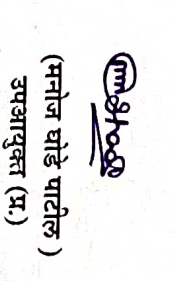 (मनोज घोडे पाटील )
उपआयुक्त (प्र.)